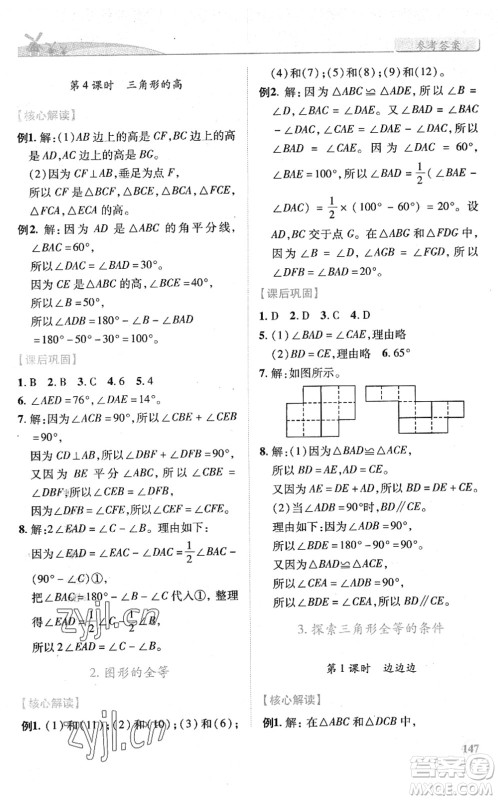 参考答案
第4课时 三角形的高
【核心解读】
例1. 解：(1)AB 边上的高是 CF,BC 边上的高是 AD,AC 边上的高是 BG.
(2)因为 CF⊥AB,垂足为点 F,
所以 CF 是 △BCF，△BCE，△ABC，
△FCA，△FCE，△ECA 的高.
例2. 解：因为 AD 是 △ABC 的角平分线，
∠BAC=60°，
所以∠DAC=∠BAD=30°.
因为 CE 是 △ABC 的高，
∠BCE=40°，
所以∠B=50°，
所以∠ADB=180°－∠B－∠BAD=
180°－50°－30°=100°.
【课后巩固】
1. B 2. B 3. C 4. 6 5. B
6. ∠AED=76°，∠DAE=14°.
7. 解：因为∠ACB=90°，
所以∠CBE+∠CEB=90°.
因为 CD⊥AB，所以∠DBF+∠DFB=90°.
又因为 BE 平分 ∠ABC，所以∠CBE=
∠DBF，所以∠CEB=∠DFB.
8. 解：2∠EAD=∠C－∠B. 理由如下：
因为∠EAD=∠EAC－∠DAC=1/2∠BAC－
(90°－∠C)①，
把∠BAC=180°－∠B－∠C 代入①，整理
得∠EAD=1/2∠C－1/2∠B,
所以 2∠EAD=∠C－∠B.
2. 图形的全等
【核心解读】
例1. (1)和(11)；(2)和(10)；(3)和(6)；
(4)和(5)；(7)和(12)；(8)和(9)
例2. 解：因为 △ABC≌△ADE，所以∠B
=∠D，∠BAC=∠DAE. 又因为∠BAD=
∠BAC－∠CAD，∠CAE=∠DAE－
∠CAD，所以∠BAD=∠CAE. 因为
∠BAE=100°，∠CAD=60°，
所以∠BAD=1/2(∠BAE－∠CAD)
=1/2×(100°－60°)=20°. 设
AD,BC 交于点 G. 因为∠BAD+∠ABG+
∠AGB=∠D+∠DGF+∠DFG=180°，
所以∠BFD=∠BAD=20°.
【课后巩固】
1. D 2. D 3. C 4. D
5. (1)∠BAD=∠CAE,理由略
(2)BD=CE,理由略 6. 65°
7. 解：如图所示.
8. 解：(1)因为△BAD≌△ACE,
所以 BD=AE,AD=CE.
又因为 AE=DE+AD，所以 BD=DE+CE.
(2)当∠ADB=90°时,BD∥CE.
因为∠ADB=90°，
所以∠BDE=180°－90°=90°.
又因为△BAD≌△ACE，
所以∠CEA=∠ADB=90°，
所以∠CEA=∠BDE，
所以 BD∥CE.
3. 探索三角形全等的条件
第1课时 边边边
【核心解读】
例1. 解：在△ABC 和△DCB 中，
147
zyjl.cn
zyjl.cn
答案圈
MXQE.COM